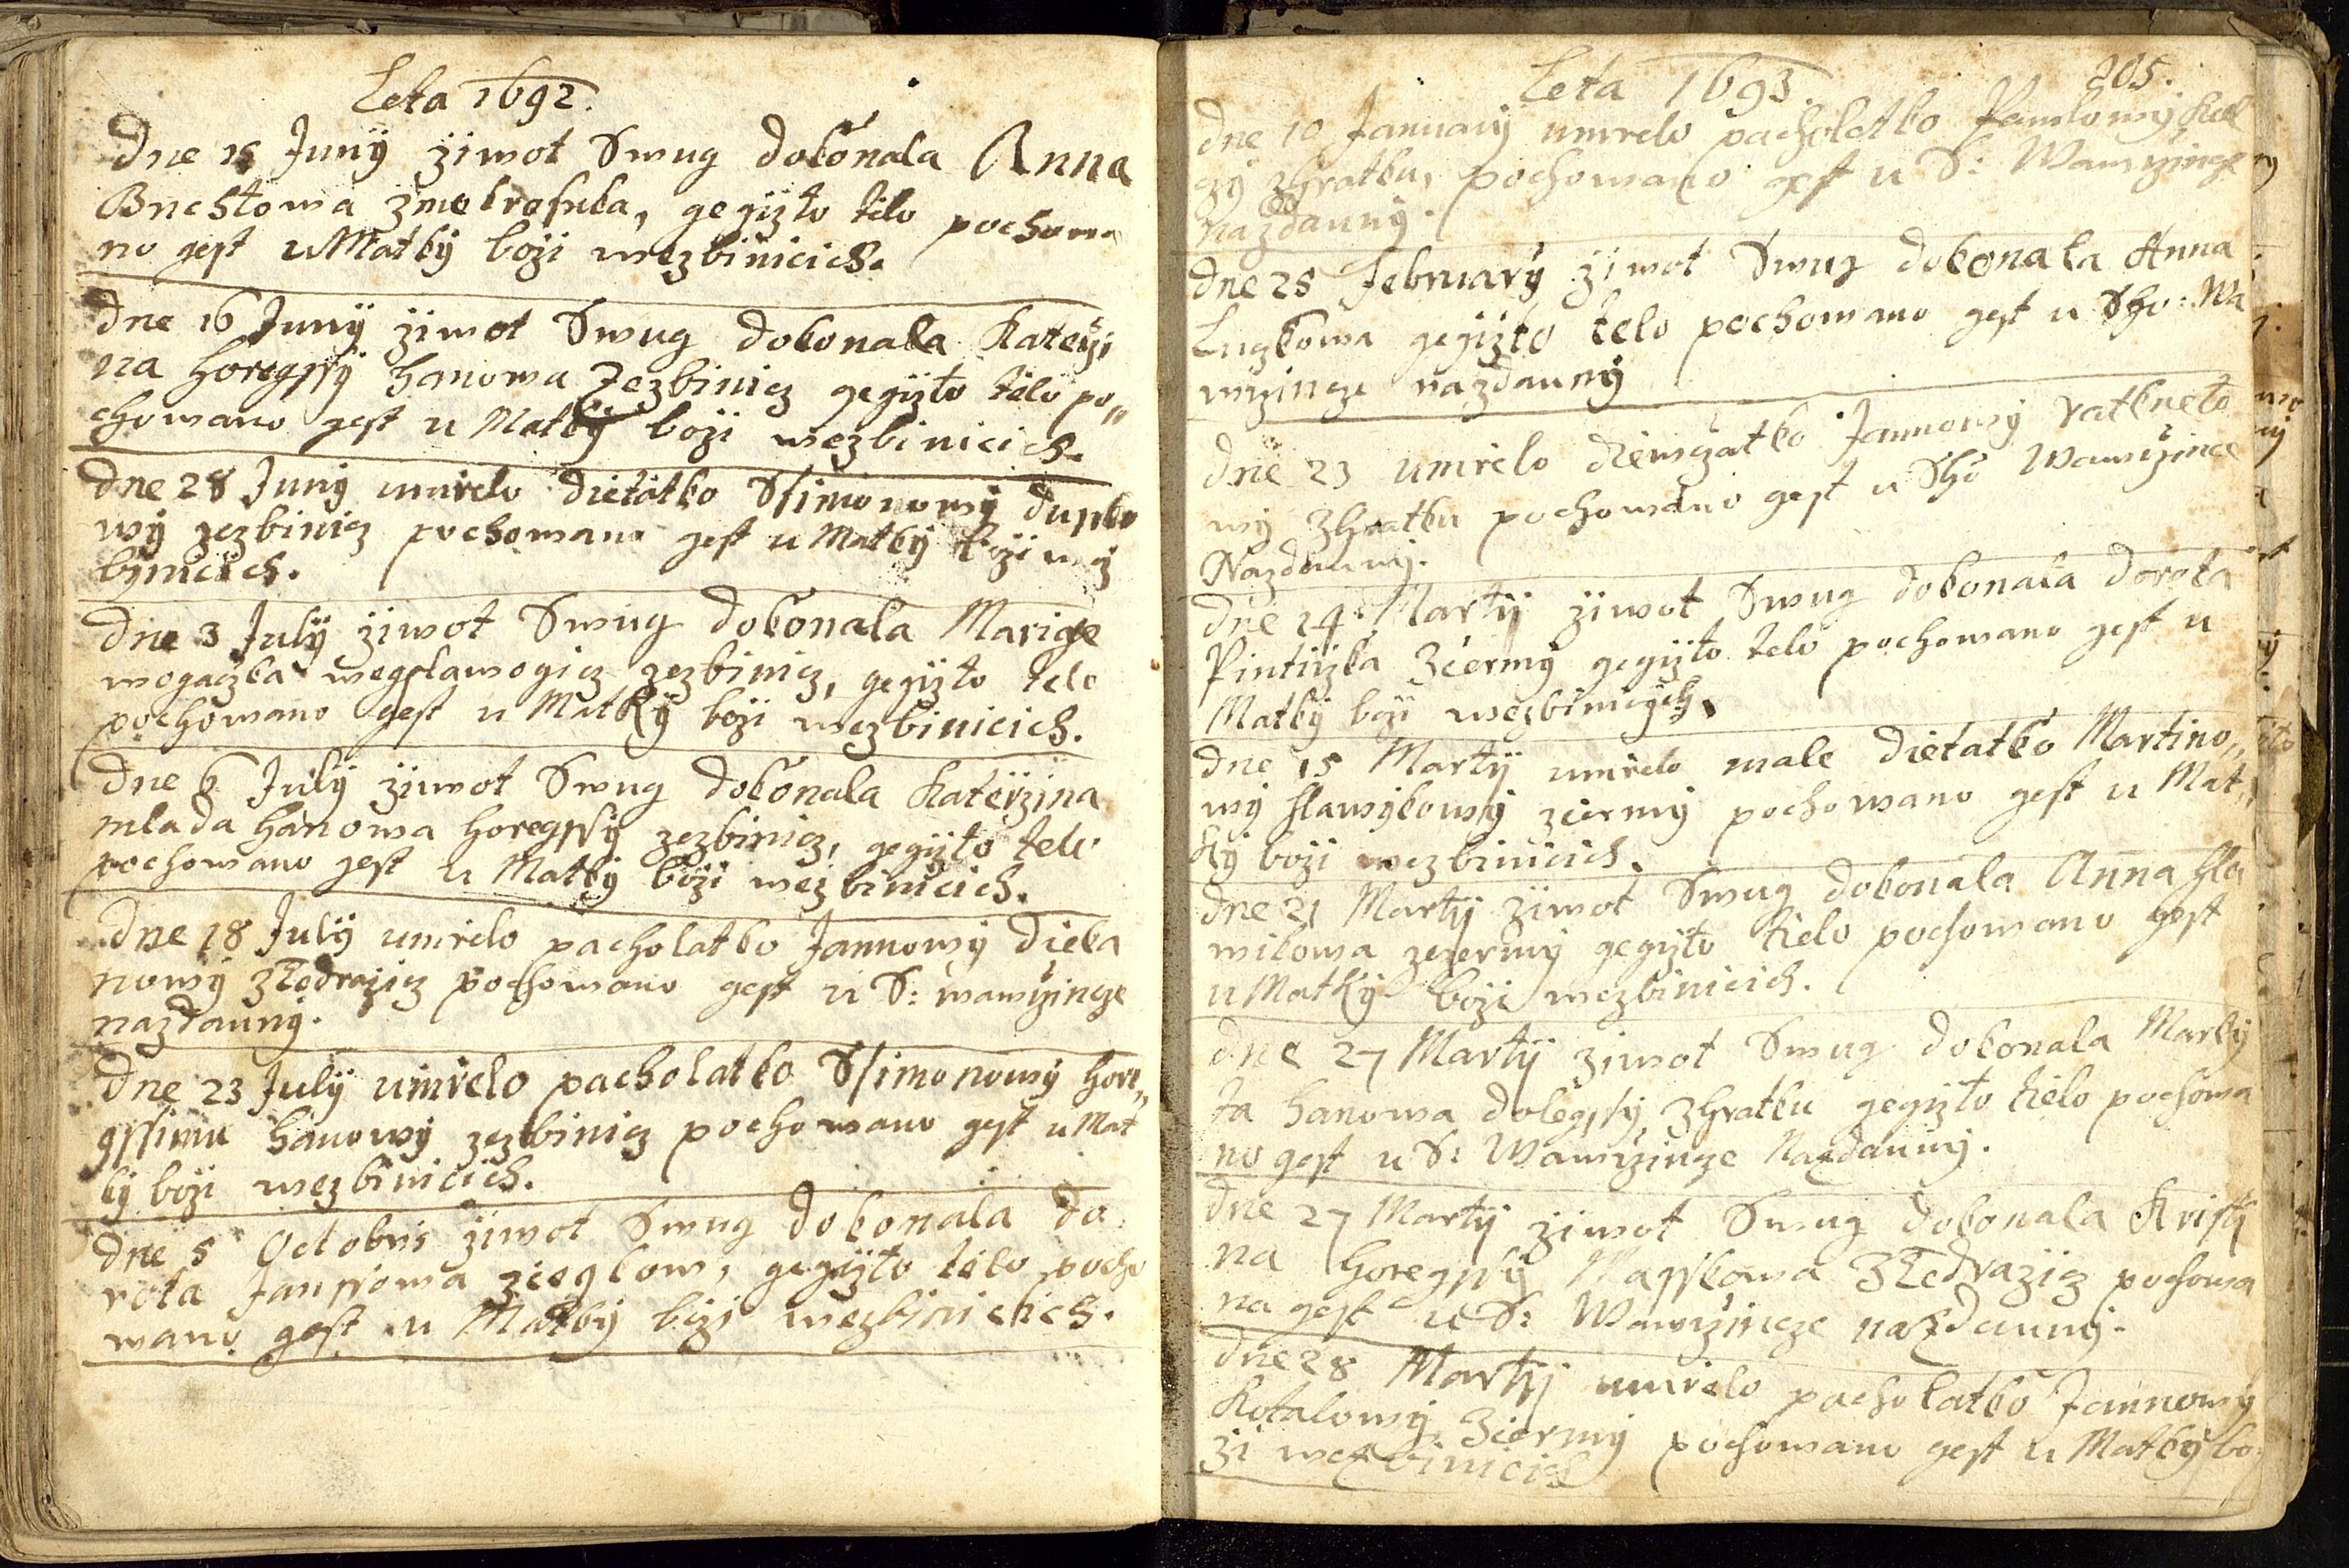 Leta 1692.
Dne 15 Juny ziwot Swug dokonala Anna
Buchtowa zmokrosuka, gegizto tielo pochowa
no gest u Matky bozi wezbinicich.
Dne 16 Juny ziwot Swug dokonala Katerzi
na horegssy hanowa Zezbinicz gegizto tielo po„
chowano gest u Matky bozi wezbinicich.
Dne 28 Juny umrelo dietatko Ssimonowy dupko
wy zezbinicz pochowano gest u Matky bozi wez
binicich.
Dne 3 July ziwot Swug dokonala Marige
wogaczka wegslawogicz zezbinicz, gegizto telo
pochowano gest u Matky bozi wezbinicich.
Dne 6 July ziwot Swug dokonala Katerzina
mlada hanowa horegssy zezbinicz, gegizto telo
pochowano gest u Matky bozi wezbinicich.
Dne 18 July umrelo pacholatko Jannowy dieka
nowy zTedrazicz pochowano gest u S: wawrzincze
nazdauny.
Dne 23 July umrelo pacholatko Ssimonowy hore„
gssimu hanowy zezbinicz pochowano gest u Mat
ky bozi wezbinicich.
Dne 5 Octobris ziwot Swug dokonala do
rota Janssowa gegizto telo pocho
wano gest u Matky bozi wezbinicich.
Leta 1693. 205.
Dne 10 January umrelo pacholatko Pawlowy
zhratku, pochowano gest u S: Wawrzincze
nazdauny.
Dne 25 February ziwot Swug dokonala Anna
Luczkowa gegizto telo pochowano gest u Sho: Wa
wrzincze nazdauny
Dne 23 umrelo diewczatko Jannowy ratkneto
wy zhratku pochowano gest u Sho Wawrzince
Nazdauny.
Dne 24 Marty ziwot Swug dokonala dorota
Pintirzka zciermy gegizto telo pochowano gest u
Matky bozi wezbinicych.
Dne 15 Marty umrelo male dietatko Martino„
wy slawikowy zciermy pochowano gest u Mat„
ky bozi wezbinicich.
Dne 21 Marty ziwot Swug dokonala Anna sla
wikowa zeciermy gegizto tielo pochowano gest
u Matky bozi wezbinicich.
Dne 27 Marty ziwot Swug dokonala Marky
ta hanowa dolegssy, zhratku gegizto tielo pochowa
no gest u S: Wawrzincze Nazdauny.
Dne 27 Marty ziwot Swug dokonala Kristy
na horegssy Masskowa zTedrazicz pochowa
na gest u S: Wawrzincze nazdauny.
Dne 28 Marty umrelo pacholatko Jannowy
Kotalowy zciermy pochowano gest u Matky bo
zi wezbinicich